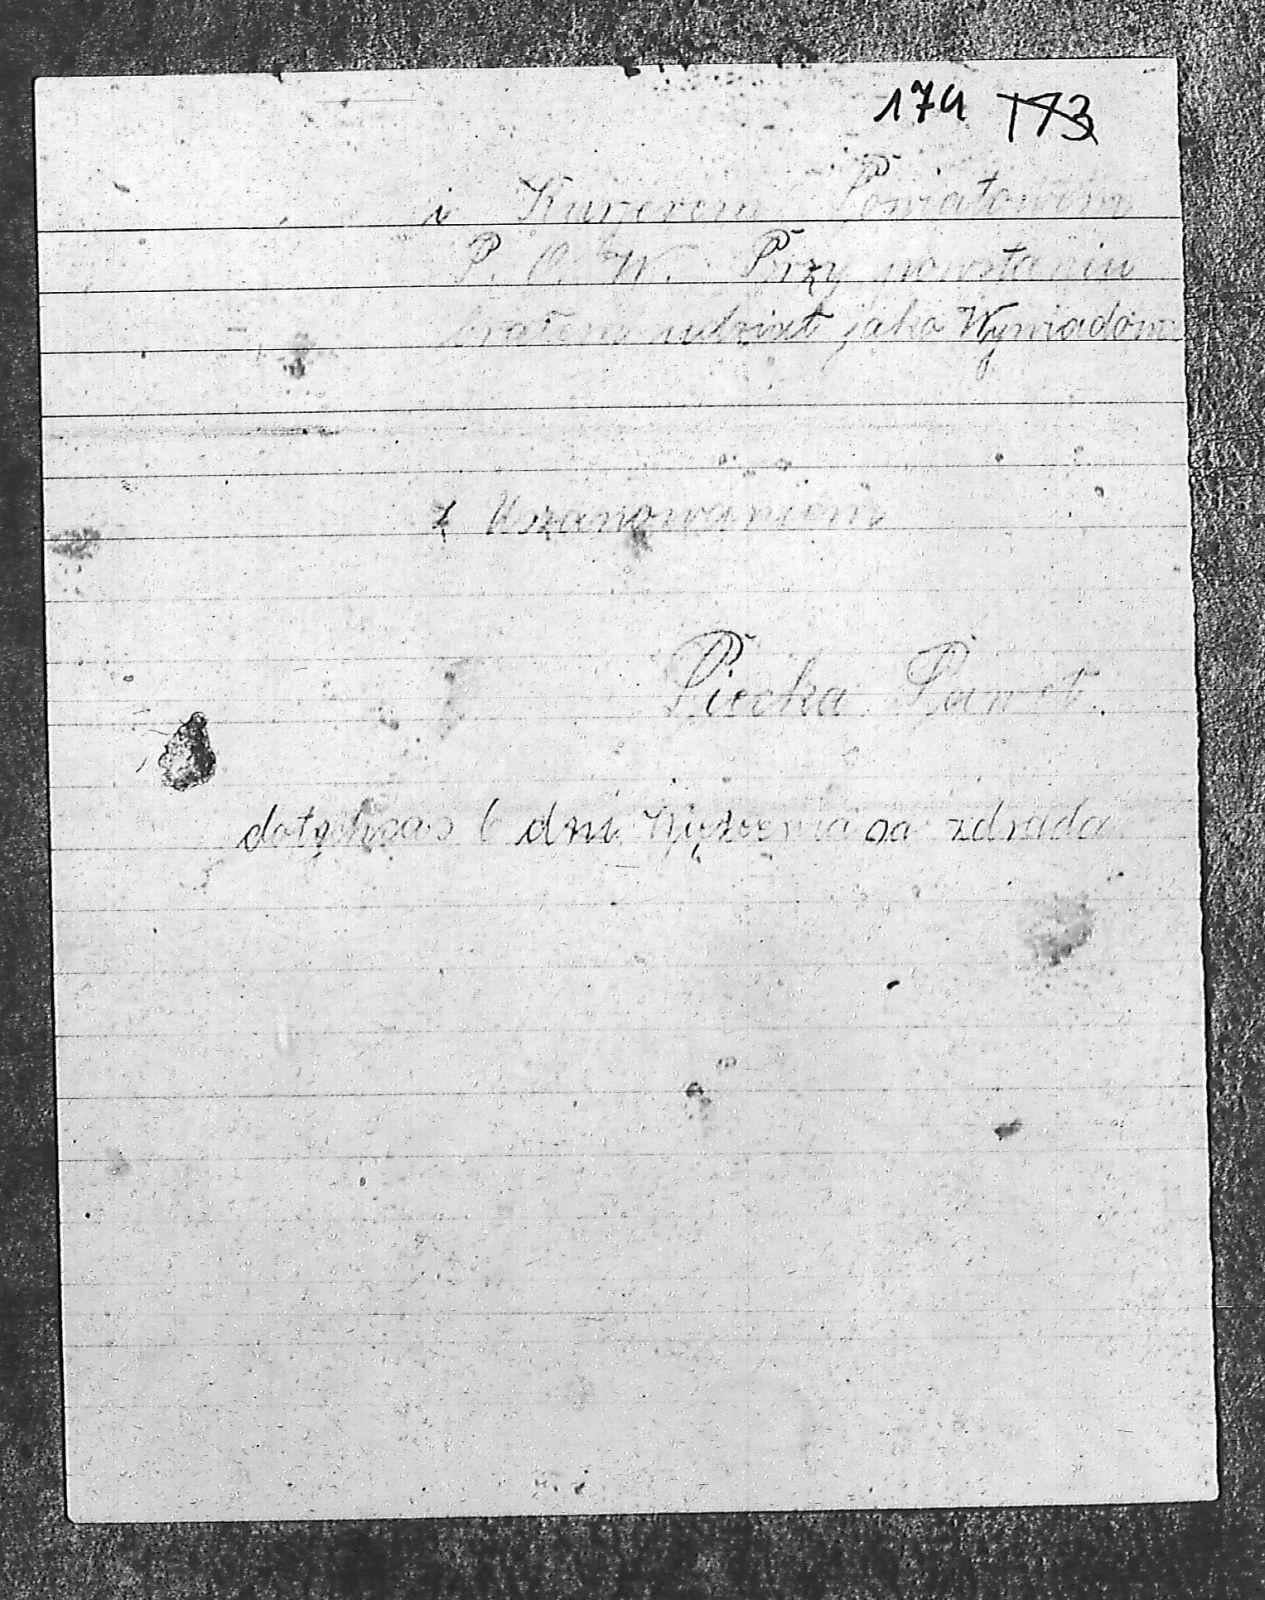 174 173
i Kurierem Powiatowem
P. O. W. Przy powstaniu
brałem udział jako Wywiadow
z Uszanowaniem
Piecha Paweł.
dotychcas 6 dni Więzenia sa zdrada